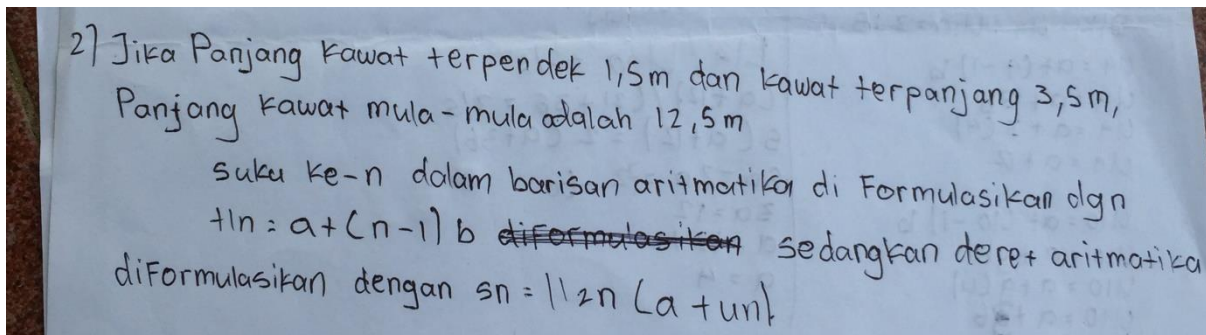 2] Jika Panjang kawat terpendek 1,5m dan kawat terpanjang 3,5m,
Panjang kawat mula-mula adalah 12,5m
suku ke-n dalam barisan aritmatika di Formulasikan dgn
tln = a+(n-1) b diformulasikan sedangkan deret aritmatika
diFormulasikan dengan sn = 1/2n (a + un)